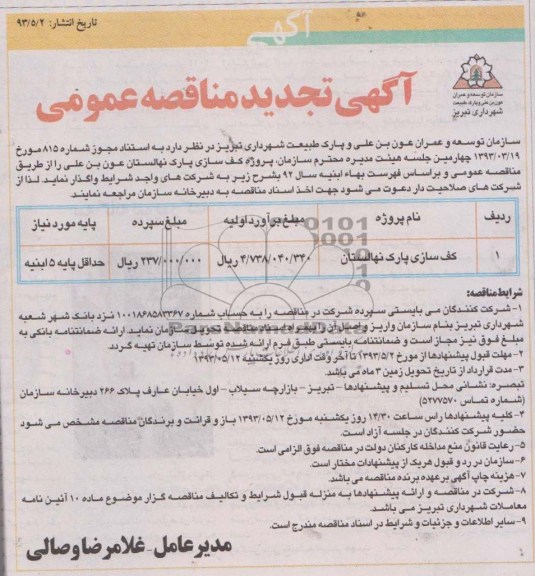 تاریخ انتشار: ۹۳/۵/۲
آگهی
سازمان توسعه و عمران
عون بن علی و پارک طبیعت
شهرداری تبریز
آگهی تجدید مناقصه عمومی
سازمان توسعه و عمران عون بن علی و پارک طبیعت شهرداری تبریز در نظر دارد به استناد مجوز شماره ۸۱۵ مورخ
۱۳۹۳/۰۳/۱۹ چهارمین جلسه هیئت مدیره محترم سازمان، پروژه کف سازی پارک نهالستان عون بن علی را از طریق
مناقصه عمومی و براساس فهرست بهاء ابنیه سال ۹۲ بشرح زیر به شرکت های واجد شرایط واگذار نماید. لذا از
شرکت های صلاحیت دار دعوت می شود جهت اخذ اسناد مناقصه به دبیرخانه سازمان مراجعه نمایند.
ردیف نام پروژه مبلغ برآورد اولیه مبلغ سپرده پایه مورد نیاز
۱ کف سازی پارک نهالستان ۴/۷۳۸/۰۴۰/۳۴۰ ریال ۲۳۷/۰۰۰/۰۰۰ ریال حداقل پایه ۵ ابنیه
شرایط مناقصه:
۱-شرکت کنندگان می بایستی سپرده شرکت در مناقصه را به حساب شماره ۱۰۰۱۸۶۸۵۸۳۳۶۷ نزد بانک شهر شعبه
شهرداری تبریز بنام سازمان واریز و اصل آن را به همراه اسناد مناقصه تحویل سازمان نماید. ارائه ضمانتنامه بانکی به
مبلغ فوق نیز مجاز است و ضمانتنامه بایستی طبق فرم ارائه شده توسط سازمان تهیه گردد.
۲-مهلت قبول پیشنهادها از مورخ ۱۳۹۳/۵/۲ تا آخر وقت اداری روز یکشنبه ۱۳۹۳/۰۵/۱۲
۳-مدت قرارداد از تاریخ تحویل زمین ۳ ماه می باشد.
تبصره: نشانی محل تسلیم و پیشنهادها - تبریز - بازارچه سیلاب - اول خیابان عارف پلاک ۲۶۶ دبیرخانه سازمان
(شماره تماس ۵۲۷۷۵۷۰)
۴- کلیه پیشنهادها راس ساعت ۱۴/۳۰ روز یکشنبه مورخ ۱۳۹۳/۰۵/۱۲ باز و قرائت و برندگان مناقصه مشخص می شود
حضور شرکت کنندگان در جلسه آزاد است.
۵-رعایت قانون منع مداخله کارکنان دولت در مناقصه فوق الزامی است.
۶-سازمان در رد و قبول هریک از پیشنهادات مختار است.
۷-هزینه چاپ آگهی بر عهده برنده مناقصه می باشد.
۸-شرکت در مناقصه و ارائه پیشنهادها به منزله قبول شرایط و تکالیف مناقصه گزار موضوع ماده ۱۰ آئین نامه
معاملات شهرداری تبریز می باشد.
۹-سایر اطلاعات و جزئیات و شرایط در اسناد مناقصه مندرج است.
مدیرعامل - غلامرضا وصالی